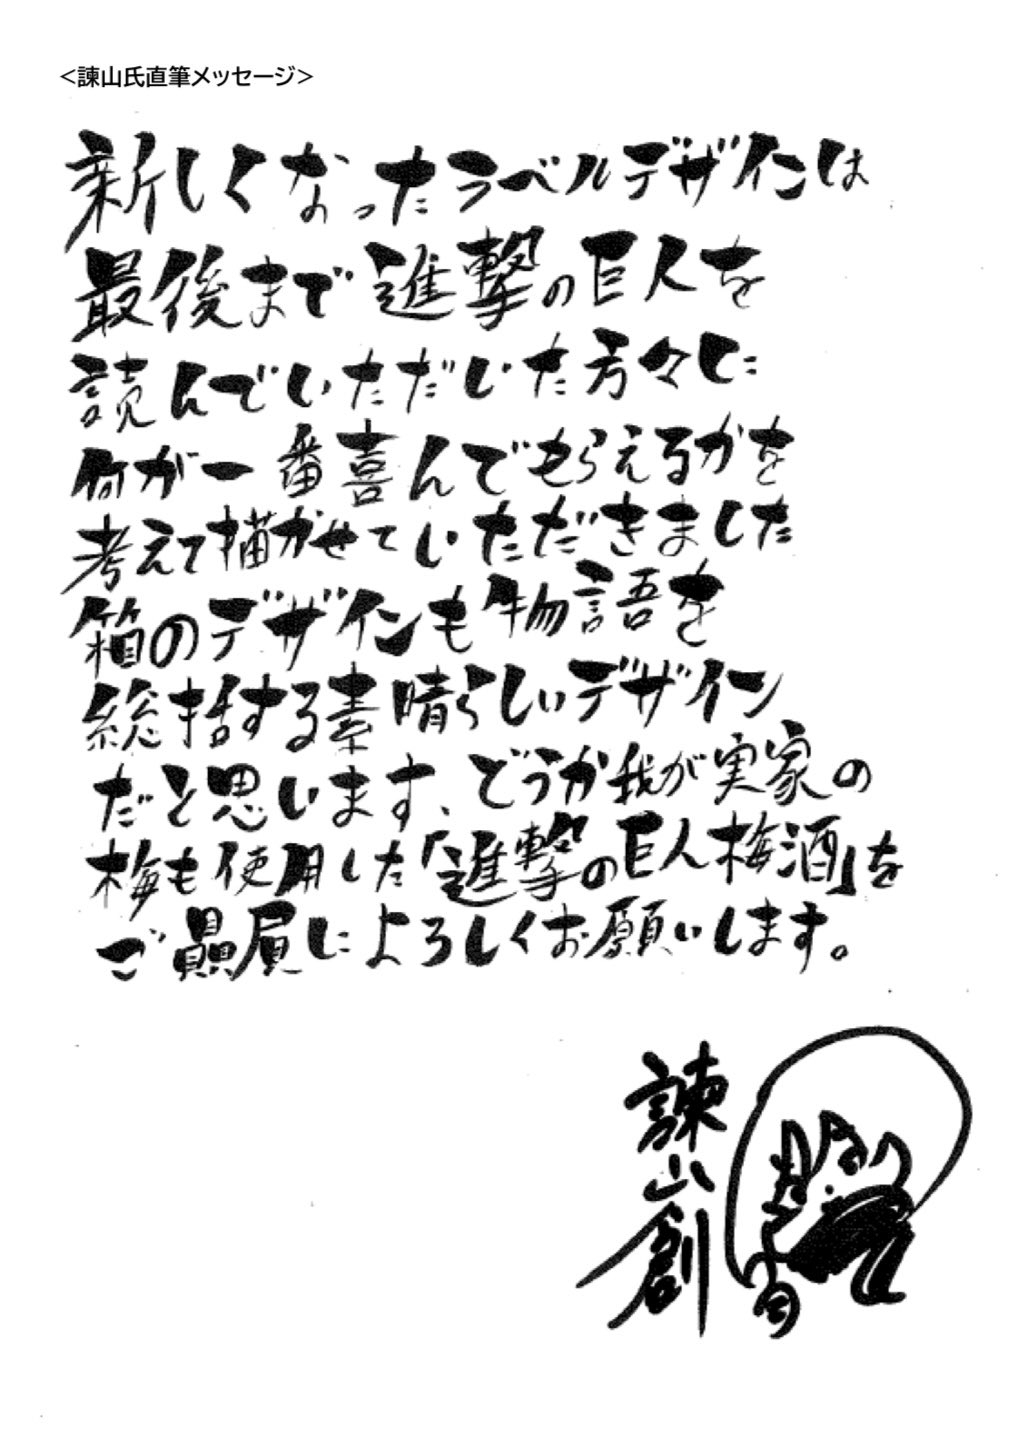 <諫山氏直筆メッセージ>
新しくなったラベルデザインは
最後まで進撃の巨人を
読んでいただいた方々に
何が一番喜んでもらえるかを
考えて描かせていただきました
箱のデザインも物語を
総括する素晴らしいデザイン
だと思います、どうか我が実家の
梅も使用した「進撃の巨人梅酒」を
ご贔屓によろしくお願いします。
諫山創